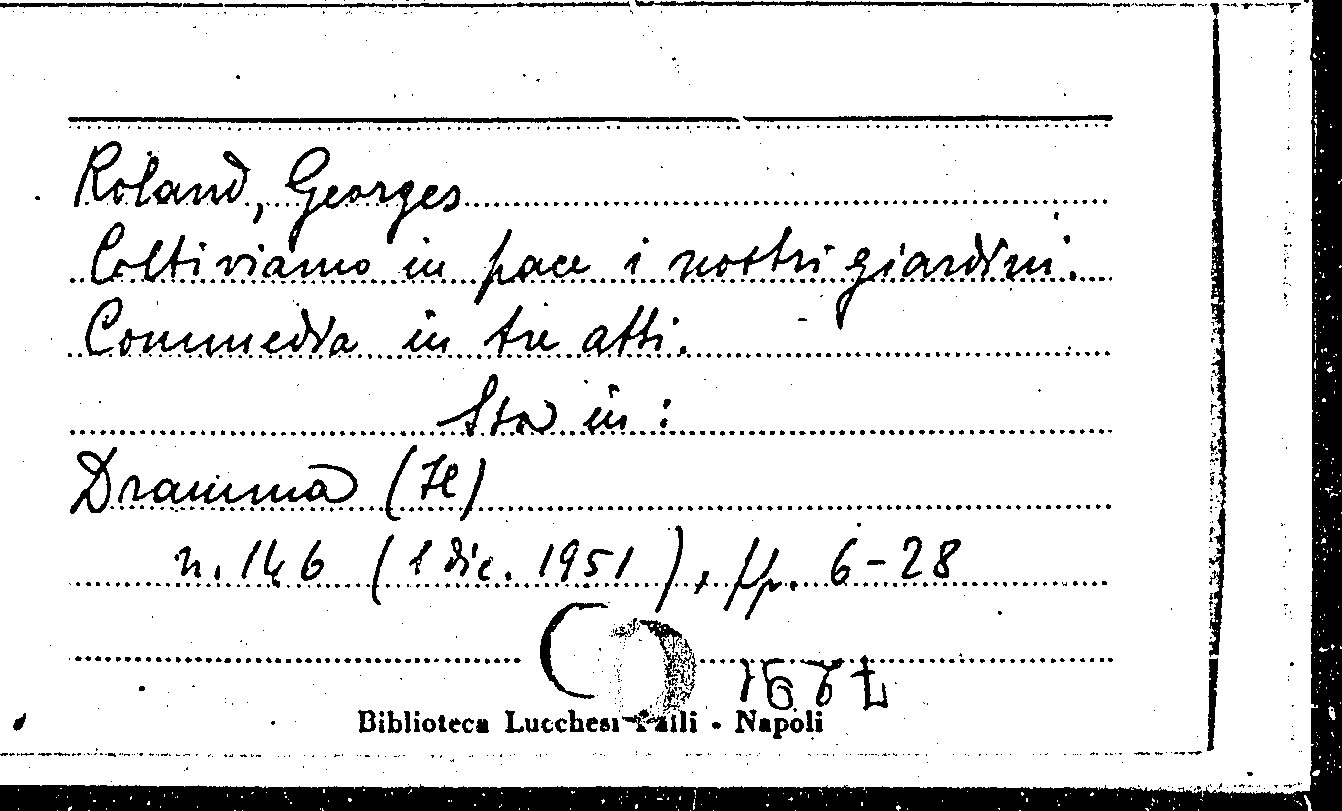 Roland, Georges
Coltiviamo in pace i nostri giardini.
Commedia in tre atti.
Sta in:
Dramma (Il)
n. 146 (1 dic. 1951), pp. 6-28
Biblioteca Lucchesi-Palli - Napoli